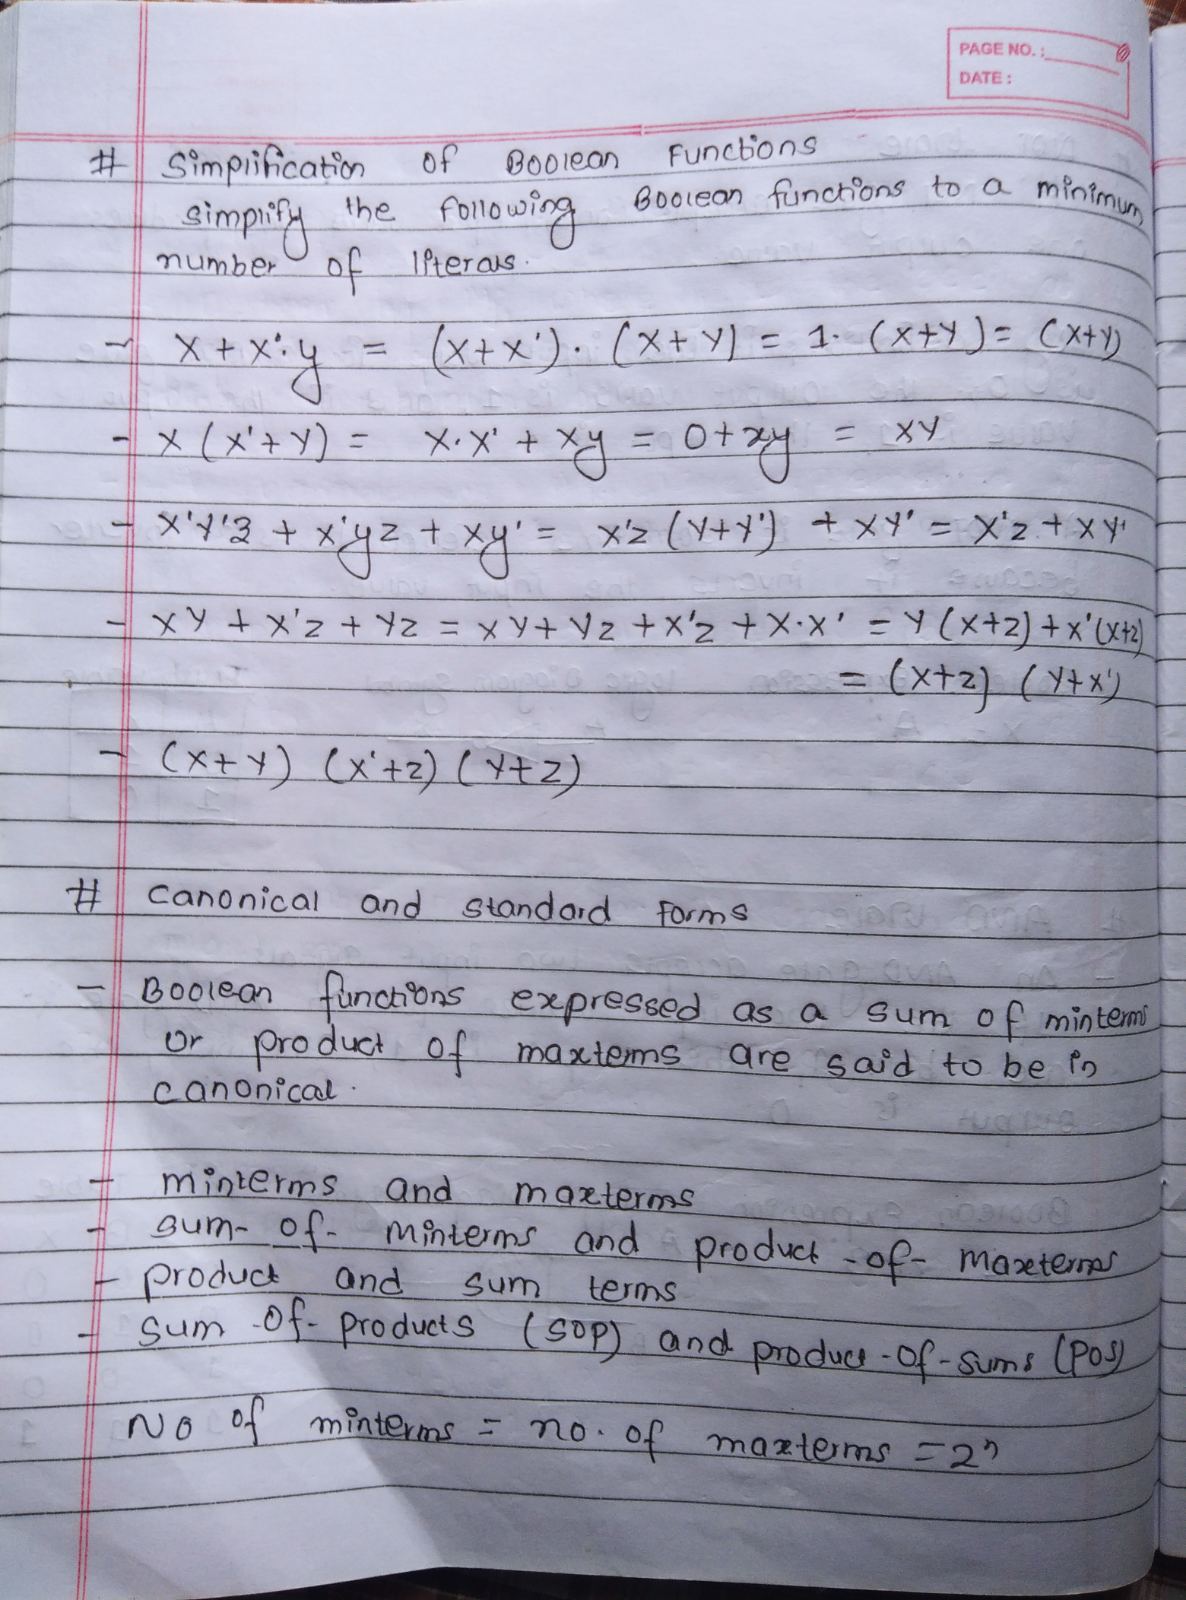 PAGE NO. :
DATE :
# Simplification of Boolean Functions
simplify the following Boolean functions to a minimum
number of literals.
- X + X'·y = (X+X')·(X+Y) = 1·(X+Y) = (X+Y)
- X (X'+Y) = X·X' + xy = 0+xy = XY
- X'Y'Z + X'yz + xy' = X'z (Y+Y') + XY' = X'z + XY'
- XY + X'z + Yz = XY + Yz + X'z + X·X' = Y(X+z) + X'(X+z)
= (X+z) (Y+X')
- (X+Y) (X'+z) (Y+Z)
# canonical and standard forms
- Boolean functions expressed as a sum of minterms
or product of maxterms are said to be in
canonical.
- minterms and maxterms
- sum-of-minterms and product-of-maxterms
- product and sum terms
- sum-of-products (SOP) and product-of-sums (POS)
No of minterms = no. of maxterms = 2ⁿ